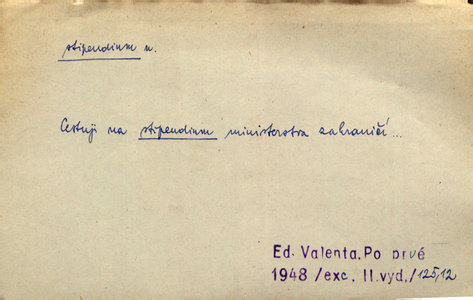 stipendium n.
Cestuji na stipendium ministerstva zahraničí...
Ed. Valenta, Po prvé
1948 /exc. II.vyd./125,12